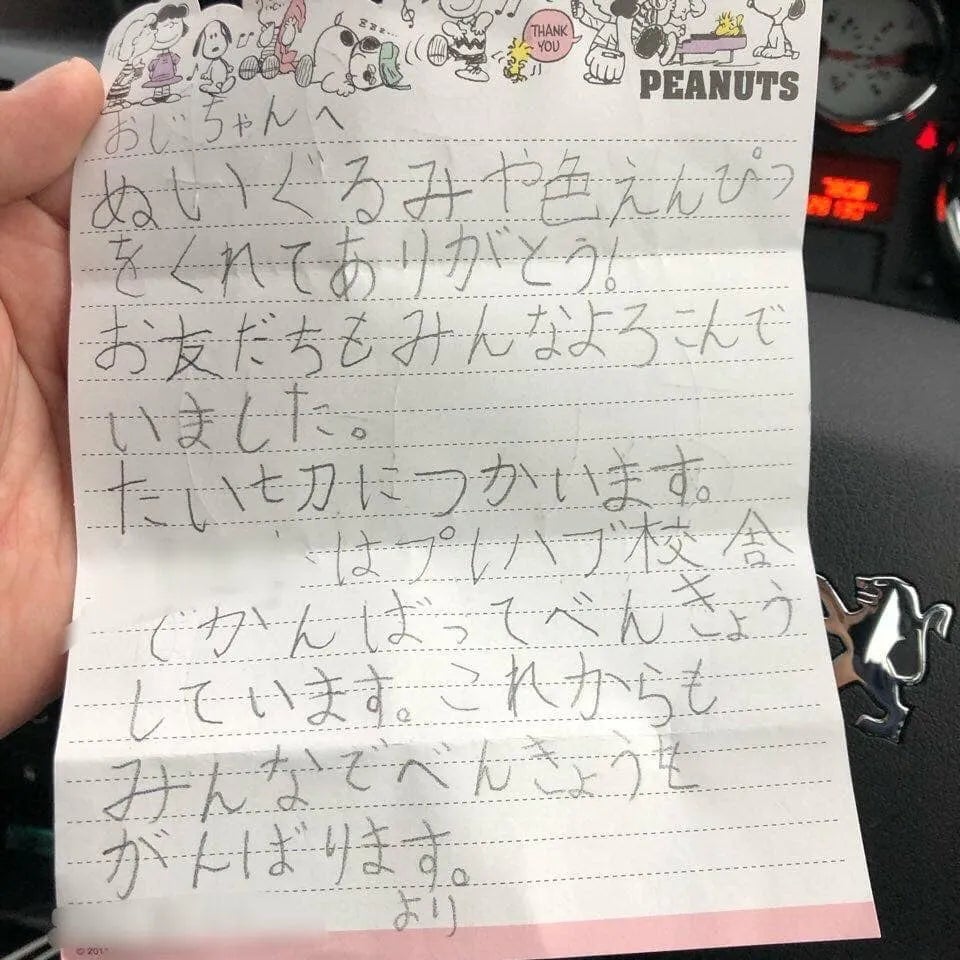 THANK
YOU
PEANUTS
おじちゃんへ
ぬいぐるみや色えんぴつ
をくれてありがとう!
お友だちもみんなよろこんで
いました。
たい切につかいます。
はプレハブ校舎
でかんばってべんきょう
しています。これからも
みんなでべんきょうも
がんばります。
より
© 201